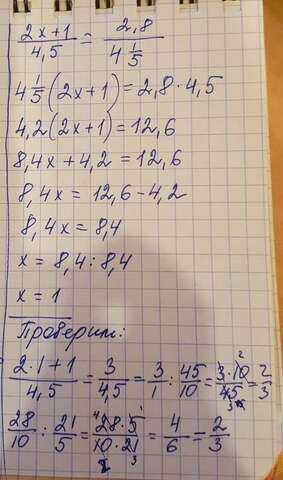 (2x+1)/4,5 = 2,8/(4 1/5)
4 1/5 (2x+1) = 2,8 · 4,5
4,2(2x+1) = 12,6
8,4x + 4,2 = 12,6
8,4x = 12,6 - 4,2
8,4x = 8,4
x = 8,4 : 8,4
x = 1
Проверим:
(2·1+1)/4,5 = 3/4,5 = 3/1 : 45/10 = (3·10)/45 = 2/3
28/10 : 21/5 = (28·5)/(10·21) = 4/6 = 2/3